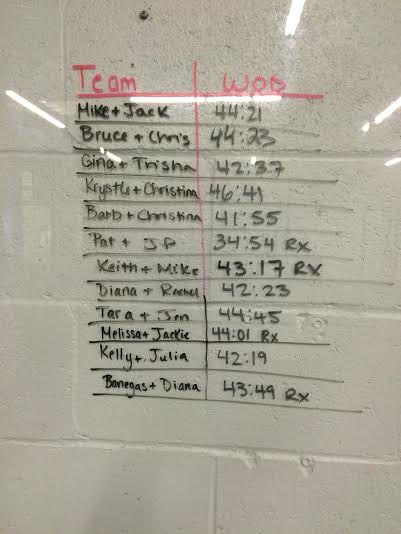 Team WOD
Mike + Jack 44:21
Bruce + Chris 44:23
Gina + Trisha 42:37
Krystle + Christina 46:41
Barb + Christina 41:55
Pat + JP 34:54 Rx
Keith + Mike 43:17 Rx
Diana + Rachel 42:23
Tara + Jen 44:45
Melissa + Jackie 44:01 Rx
Kelly + Julia 42:19
Banegas + Diana 43:49 Rx